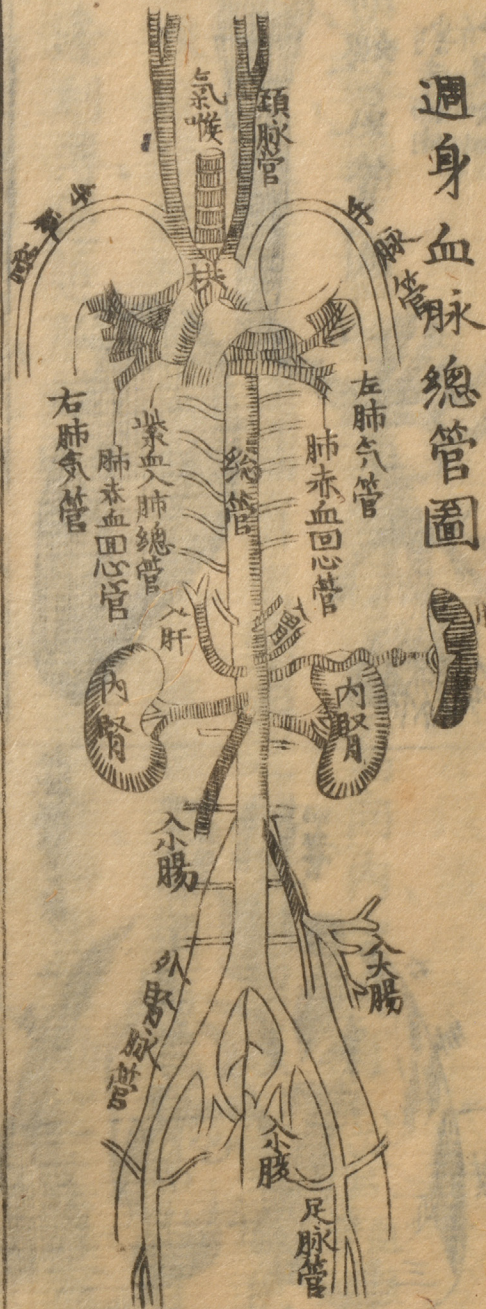 週身血脉總管圖
頸脉管
氣喉
手脉管
手脉管
拱
左肺氣管
肺赤血回心管
総管
紫血入肺總管
肺赤血回心管
右肺氣管
入胃
入肝
內腎
內腎
入小腸
入大腸
外腎脉管
足脉管